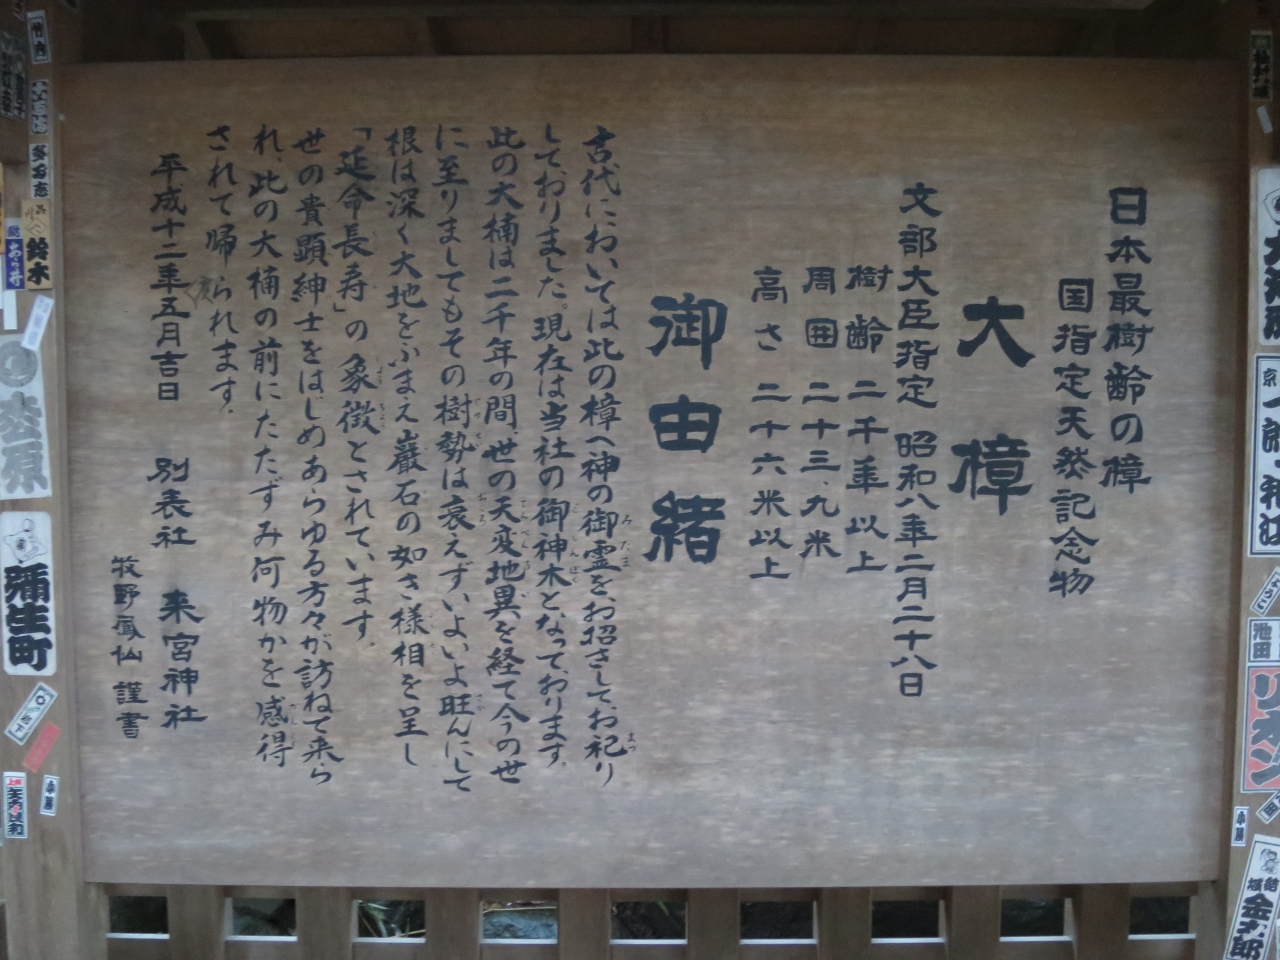 日本最樹齢の樟
国指定天然記念物
大樟
文部大臣指定 昭和八年二月二十八日
樹齢 二千年以上
周囲 二十三、九米
高さ 二十六米以上
御由緒
古代においては此の樟へ神の御霊をお招きしてお祀り
しておりました。現在は当社の御神木となっております。
此の大楠は二千年の間、世の天変地異を経て今の世
に至りましてもその樹勢は衰えずいよいよ旺んにして
根は深く大地をふまえ巌石の如き様相を呈し
「延命長寿」の象徴とされています。
世の貴顕紳士をはじめあらゆる方々が訪ねて来ら
れ、此の大楠の前にたたずみ何物かを感得
されて帰られます。
平成十二年五月吉日 別表社 来宮神社
牧野鳳仙 謹書
竹内
鈴木
あら井
弥生町
矢内良和
池田
リオン
金太郎